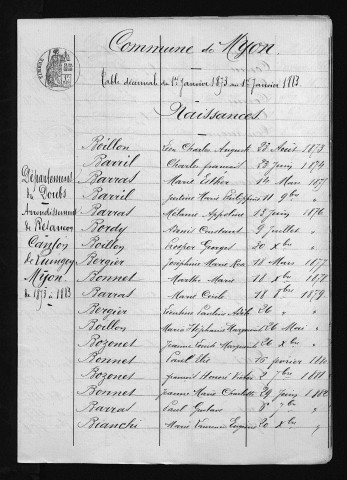 Commune de Myon.
Table décennale du 1er Janvier 1873 au 1er Janvier 1883.
Naissances
Département
du Doubs
Arrondissement
de Besançon
Canton
de Quingey
Myon
de 1873 à 1883
Boillon Léon Charles August 23 Août 1873
Barril Charles francois 23 Juin 1874
Barras Marie Esther 14 Mars 1875
Barril Justine Marie Philippine 11 9bre "
Barras Mélanie Appoline 13 Juin 1876
Bordy Denis Constant 9 Juillet "
Boillon Prosper Georges 20 Xbre "
Bergier Joséphine Marie Rose 18 Mars 1877
Bonnet Marthe Marie 18 Xbre
Barras Marie Cécile 18 8bre 1879
Bergier Pauline Adèle 26
Boillon Marie Stéphanie Marguerite 26 Mai "
Bozonet Jeanne Marguerite 26 Xbre "
Bonnet Paul février
Bozonet francois 2 7bre
Bonnet Jeanne Marie Charlotte 29 Juin
Barras Paul Gustave 8 "
Bianchi Marie Eugénie 20 Xbre "